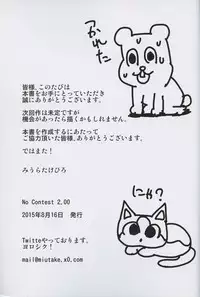 つかれた
皆様、このたびは
本書をお手にとっていただき
誠にありがとうございます。
次回作は未定ですが
機会があったら描くかもしれません。
本書を作成するにあたって
ご協力頂いた皆様、ありがとうございます。
ではまた！
みうらたけひろ
にゃ?
No Contest 2.00
2015年8月16日 発行
Twitteやっております。
ヨロシク！
mail@miutake.x0.com